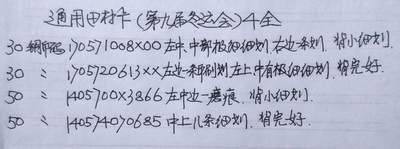 通用田村卡(第九届冬运会)4全
30 编印码,170571008X00左中.中部极细细划.右边一条划.背小细划.
30 〃 1705720613XX左边一条刷划左上.中有极细细划.背完好.
50 〃 1405700X3866左中边一磨痕.背小细划.
50 〃 140574070685中上几条细划.背完好.